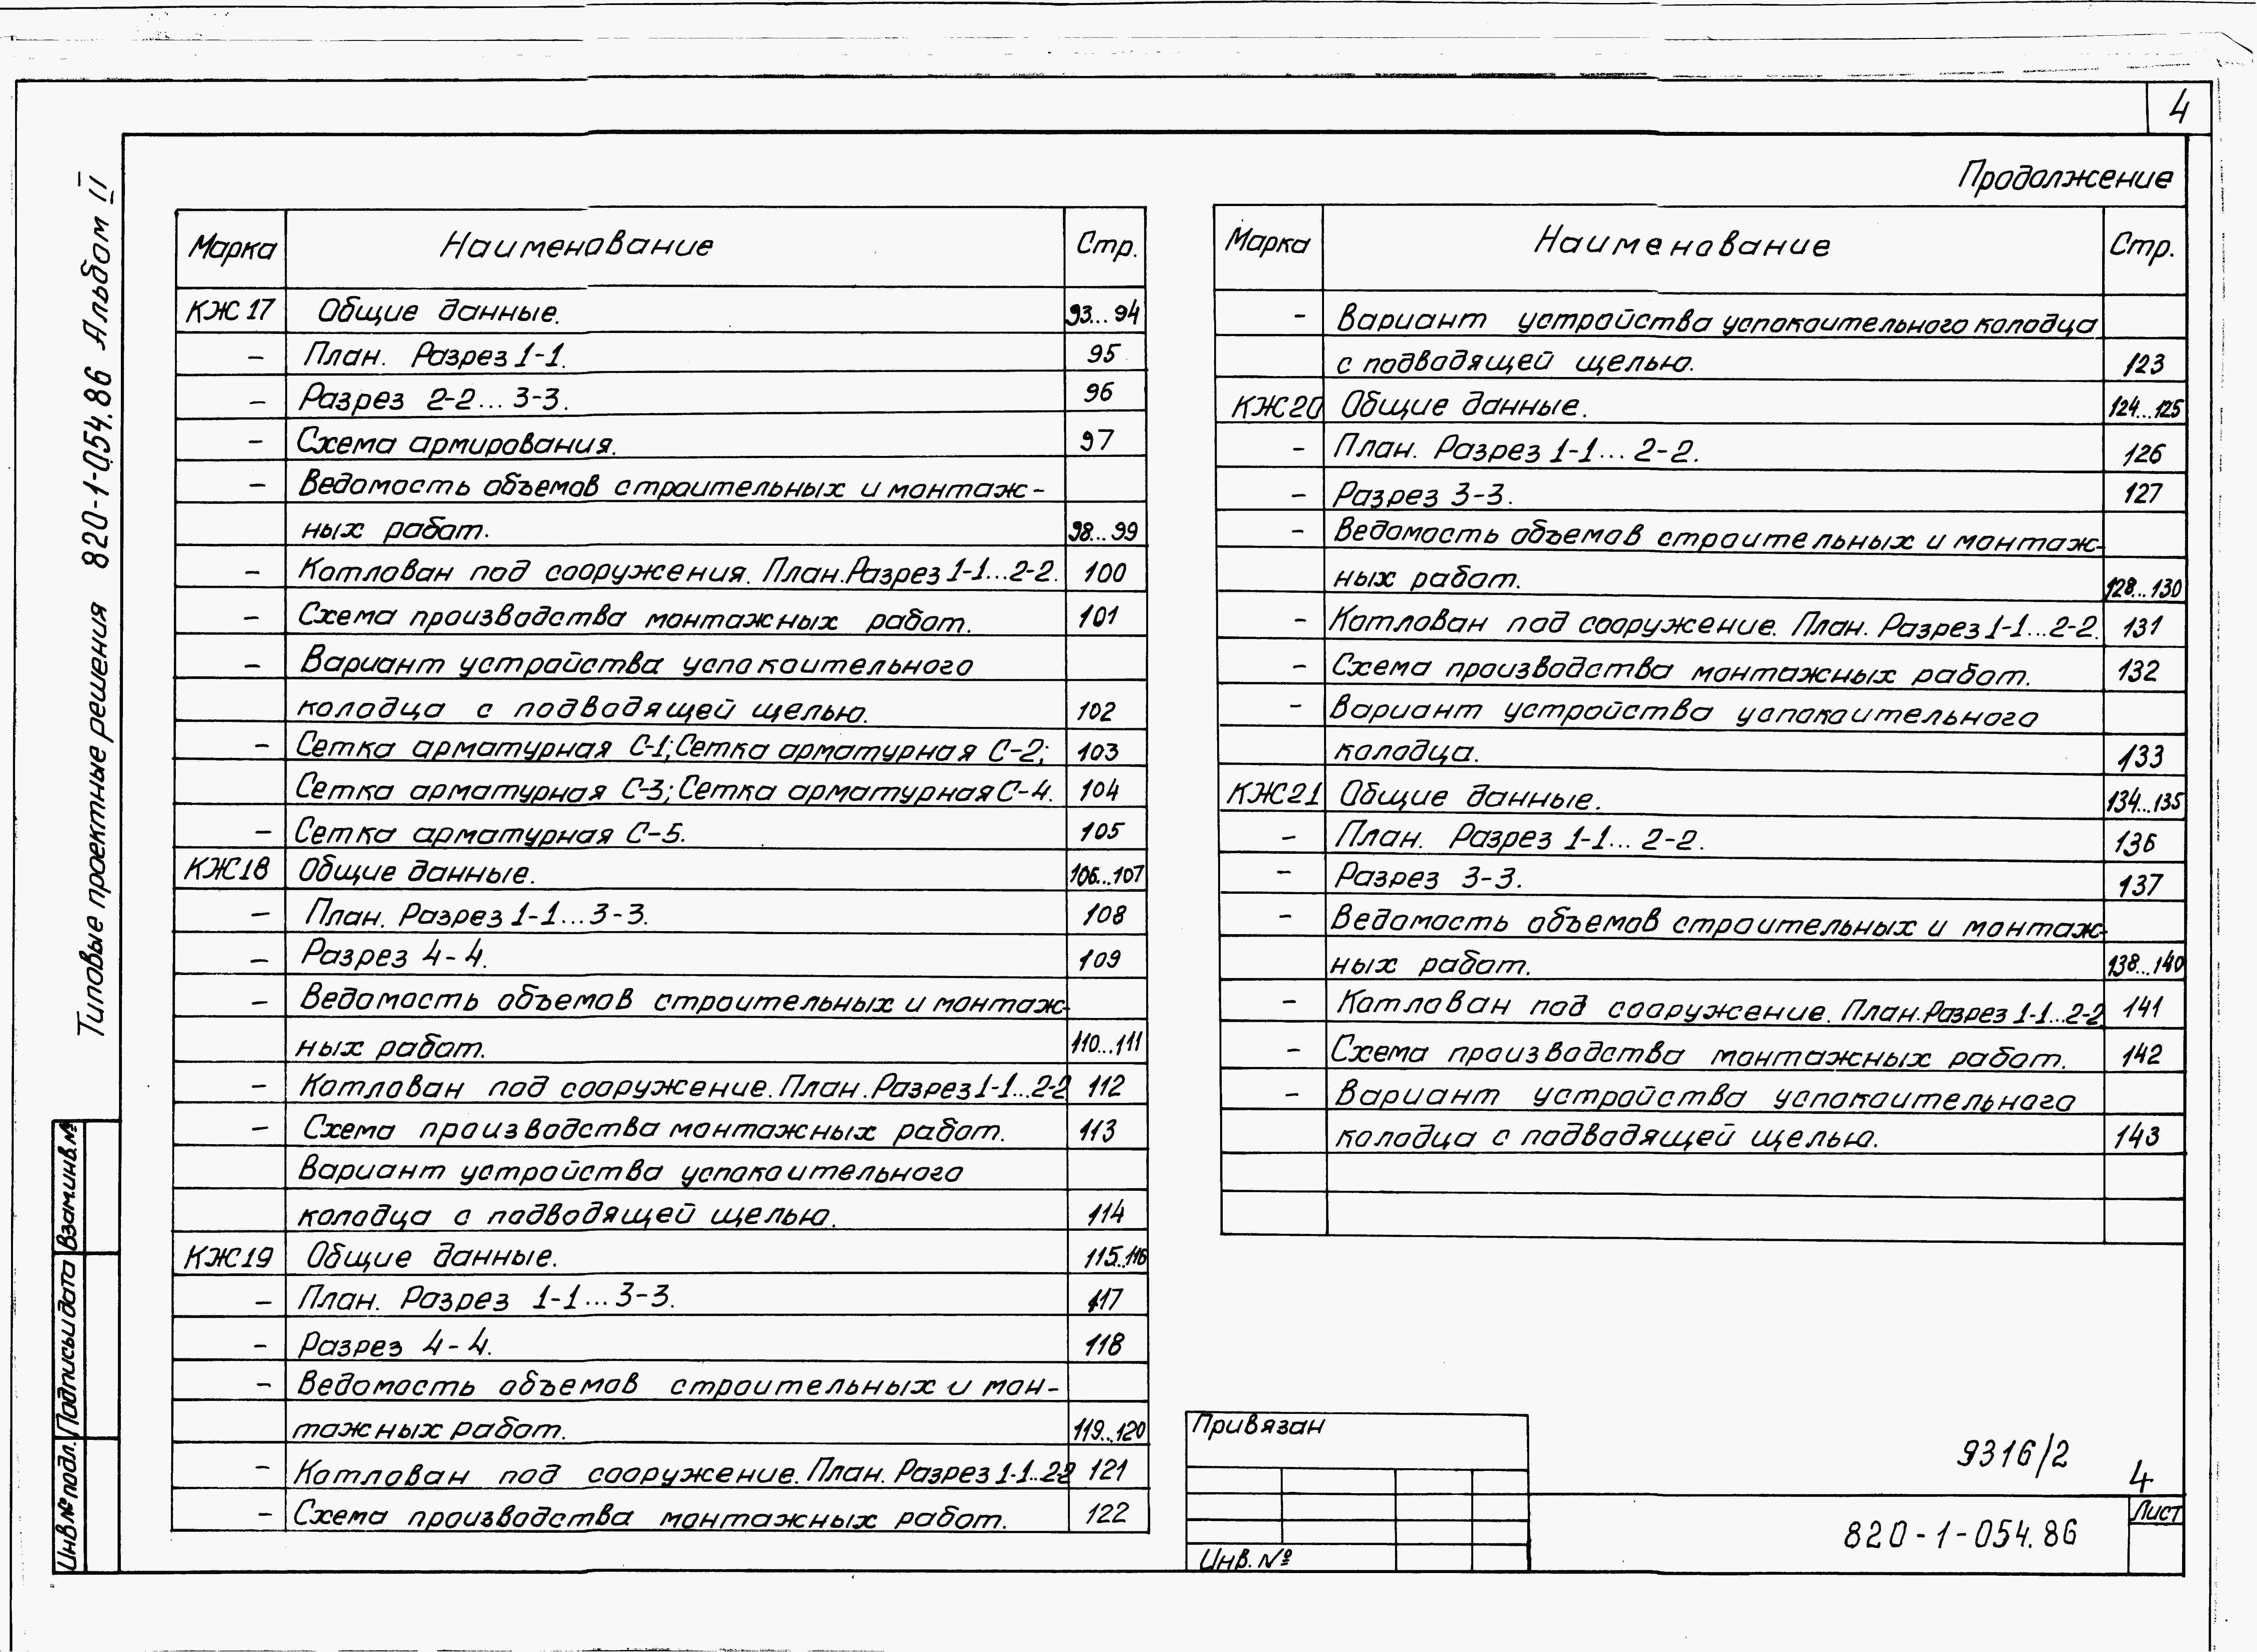 4
Продолжение
Типовые проектные решения 820-1-054.86 Альбом II
Марка Наименование Стр.
КЖ 17 Общие данные. 93...94
– План. Разрез 1-1. 95
– Разрез 2-2...3-3. 96
– Схема армирования. 97
– Ведомость объемов строительных и монтаж-
ных работ. 98...99
– Котлован под сооружения. План. Разрез 1-1...2-2. 100
– Схема производства монтажных работ. 101
– Вариант устройства успокоительного
колодца с подводящей щелью. 102
– Сетка арматурная С-1; Сетка арматурная С-2; 103
Сетка арматурная С-3; Сетка арматурная С-4. 104
– Сетка арматурная С-5. 105
КЖ18 Общие данные. 106...107
– План. Разрез 1-1...3-3. 108
– Разрез 4-4. 109
– Ведомость объемов строительных и монтаж-
ных работ. 110...111
– Котлован под сооружение. План. Разрез 1-1...2-2 112
– Схема производства монтажных работ. 113
Вариант устройства успокоительного
колодца с подводящей щелью. 114
КЖ19 Общие данные. 115..116
– План. Разрез 1-1...3-3. 117
– Разрез 4-4. 118
– Ведомость объемов строительных и мон-
тажных работ. 119..120
– Котлован под сооружение. План. Разрез 1-1..2-2 121
– Схема производства монтажных работ. 122
Марка Наименование Стр.
– Вариант устройства успокоительного колодца
с подводящей щелью. 123
КЖ20 Общие данные. 124...125
– План. Разрез 1-1...2-2. 126
– Разрез 3-3. 127
– Ведомость объемов строительных и монтаж-
ных работ. 128...130
– Котлован под сооружение. План. Разрез 1-1...2-2. 131
– Схема производства монтажных работ. 132
– Вариант устройства успокоительного
колодца. 133
КЖ21 Общие данные. 134...135
– План. Разрез 1-1...2-2. 136
– Разрез 3-3. 137
– Ведомость объемов строительных и монтаж-
ных работ. 138...140
– Котлован под сооружение. План. Разрез 1-1...2-2 141
– Схема производства монтажных работ. 142
– Вариант устройства успокоительного
колодца с подводящей щелью. 143
Инв.№ подл. Подпись и дата Взам.инв.№
Привязан
Инв. №
9316/2
4
820-1-054.86
Лист